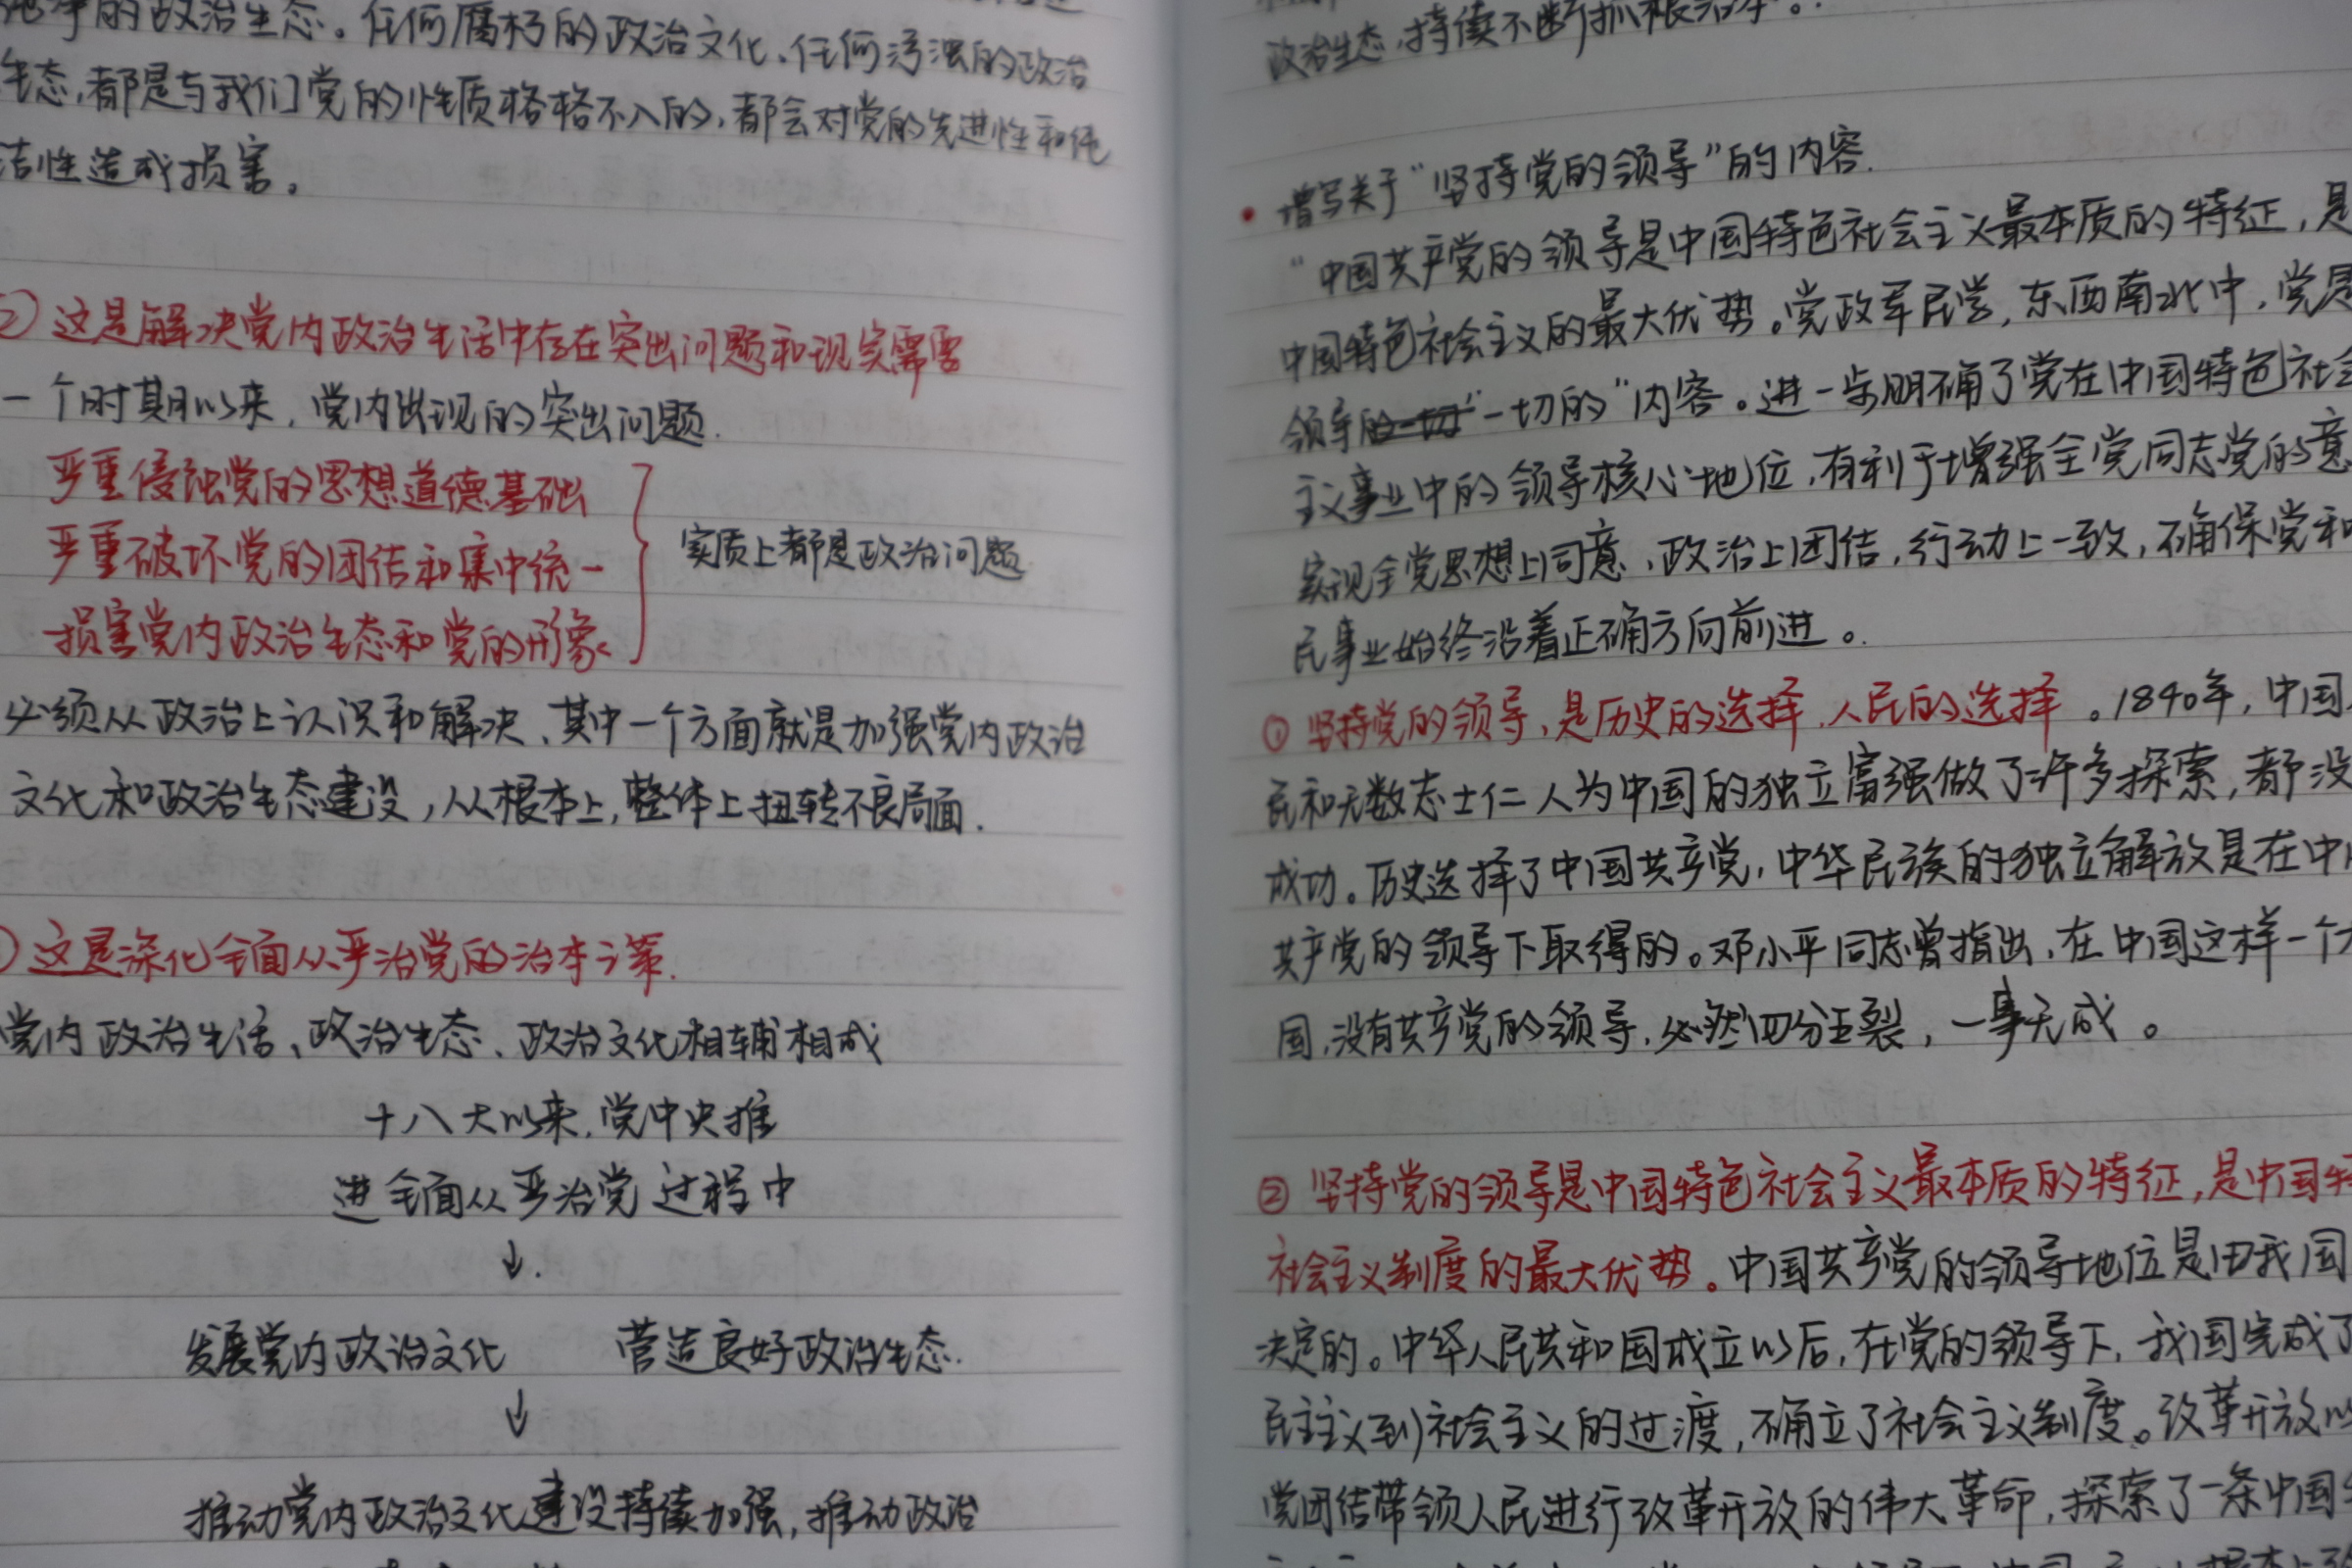 净的政治生态。任何腐朽的政治文化、任何污浊的政治
生态,都是与我们党的性质格格不入的,都会对党的先进性和纯
洁性造成损害。
② 这是解决党内政治生活中存在突出问题和现实需要
一个时期以来,党内出现的突出问题.
严重侵蚀党的思想道德基础
严重破坏党的团结和集中统一
损害党内政治生态和党的形象
实质上都是政治问题
必须从政治上认识和解决、其中一个方面就是加强党内政治
文化和政治生态建设,从根本上,整体上扭转不良局面.
这是深化全面从严治党的治本之策.
党内政治生活、政治生态、政治文化相辅相成
十八大以来,党中央推
进全面从严治党过程中
↓.
发展党内政治文化 营造良好政治生态.
↓
推动党内政治文化建设持续加强,推动政治
政治生态,持续不断抓根治本。
• 增写关于“坚持党的领导”的内容.
“中国共产党的领导是中国特色社会主义最本质的特征,是
中国特色社会主义的最大优势。党政军民学,东西南北中,党是
领导的一切“一切的”内容。进一步明确了党在中国特色社会
主义事业中的领导核心地位,有利于增强全党同志党的意
实现全党思想上同意、政治上团结,行动上一致,确保党和
民事业始终沿着正确方向前进。
① 坚持党的领导,是历史的选择,人民的选择。1840年,中国
民和无数志士仁人为中国的独立富强做了许多探索,都没
成功。历史选择了中国共产党,中华民族的独立解放是在中
共产党的领导下取得的。邓小平同志曾指出,在中国这样一个大
国,没有共产党的领导,必然四分五裂,一事无成。
② 坚持党的领导是中国特色社会主义最本质的特征,是中国特
社会主义制度的最大优势。中国共产党的领导地位是由我国
决定的。中华人民共和国成立以后,在党的领导下,我国完成了
民主主义到社会主义的过渡,确立了社会主义制度。改革开放以
党团结带领人民进行改革开放的伟大革命,探索了一条中国